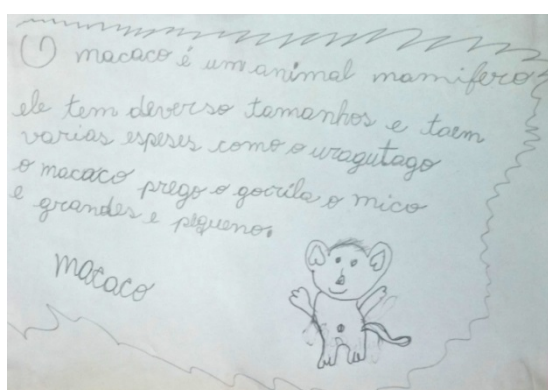 O macaco é um animal mamifero
ele tem deverso tamanhos e taem
varias espeses como o uragutago
o macaco prego o gorrila o mico
e grandes e pequeno.
macaco